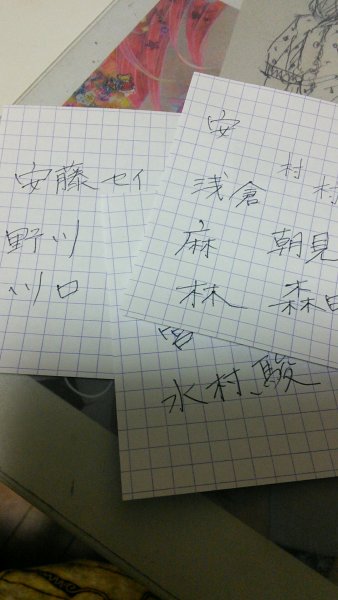 安藤セイ
野川
川口
安
村
浅倉 村
麻 朝見
林 森田
水村駿